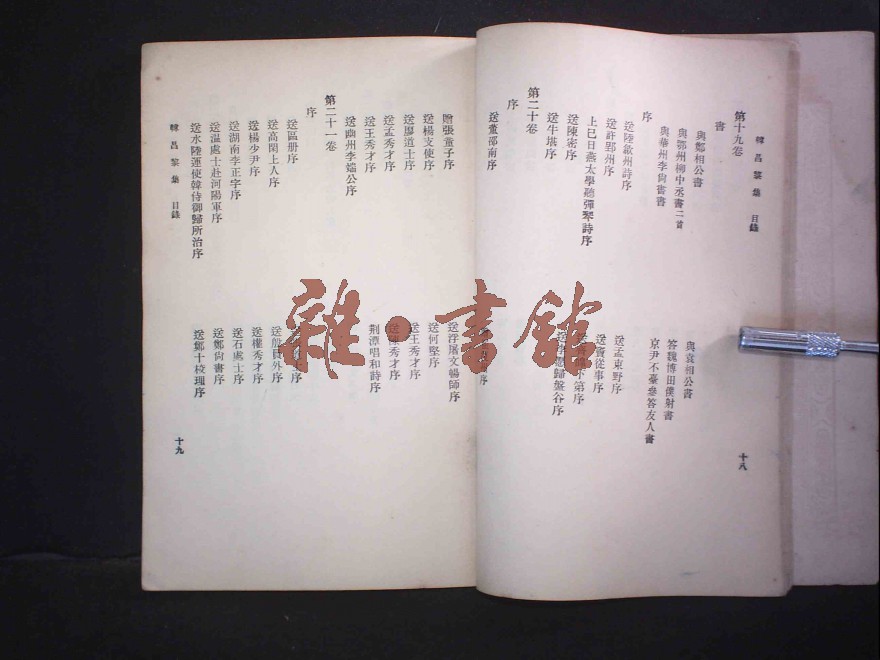 韓昌黎集 目錄
第十九卷
書
與鄭相公書
與袁相公書
與鄂州柳中丞書二首
答魏博田僕射書
與華州李尚書書
京尹不臺參答友人書
序
送陸歙州詩序
送孟東野序
送許郢州序
送竇從事序
上巳日燕太學聽彈琴詩序
第序
送陳密序
歸盤谷序
送牛堪序
第二十卷
序
送董邵南序
序
贈張童子序
送浮屠文暢師序
送楊支使序
送何堅序
送廖道士序
送王秀才序
送孟秀才序
秀才序
送王秀才序
荆潭唱和詩序
送幽州李端公序
第二十一卷
序
送區册序
序
送高閑上人序
送殷員外序
送楊少尹序
送權秀才序
送湖南李正字序
送石處士序
送溫處士赴河陽軍序
送鄭尚書序
送水陸運使韓侍御歸所治序
送鄭十校理序
韓昌黎集 目錄
十八
十九
雜·書館